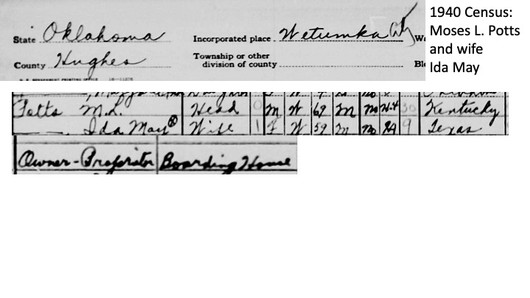 State Oklahoma Incorporated place Wetumka City W
County Hughes Township or other
division of county Bl
1940 Census:
Moses L. Potts
and wife
Ida May
Potts M.L. Head O M W 69 M No H-4 30 Kentucky
Ida May Wife 1 F W 59 M No 9 Texas
Owner-Proprietor Boarding House